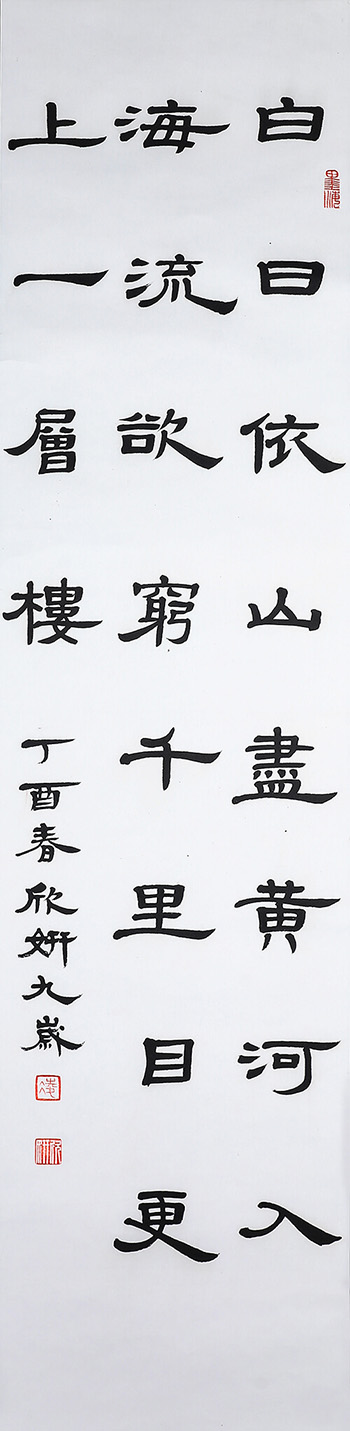 白日依山盡黄河入
海流欲窮千里目更
上一層樓
丁酉春欣妍九歲